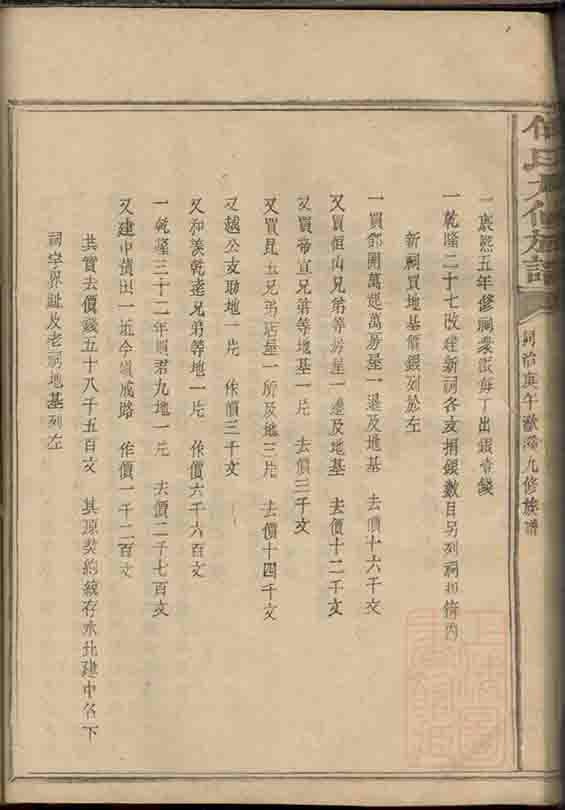 何氏九修族譜
同治庚午 九修族譜
一康熙五年修祠衆派每丁出銀壹錢
一乾隆二十七改建新祠各支捐銀數目另列祠 内
新祠買地基價銀列於左
一買鄧開萬廷萬房屋一 及地基 去價十六千文
又買恒山兄弟等房屋一 及地基 去價十二千文
又買帝宣兄弟等地基一片 去價三千文
又買昆玉兄弟店屋一所及地三片 去價十四千文
又越公支助地一片 作價三千文
又和美乾老兄弟等地一片 作價六千六百文
一乾隆三十二年買君九地一片 去價二千七百文
又建中 田一近今 成路 作價一千二百文
共實去價錢五十八千五百文 其原契約統存永北建中名下
祠宇界址及老祠地基列左